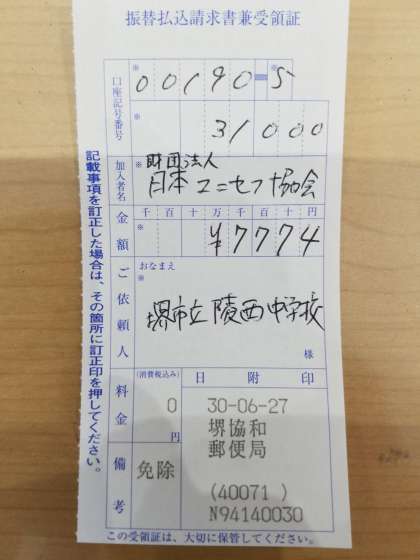 振替払込請求書兼受領証
口座記号番号
※ 00190-5 ※
31000
加入者名
※
財団法人
日本ユニセフ協会
金額
千 百 十 万 千 百 十 円
※
¥7774
ご依頼人
おなまえ
※
堺市立陵西中学校
様
料金
(消費税込み)
0
円
日附印
30-06-27
堺協和
郵便局
(40071 )
N94140030
備考
免除
記載事項を訂正した場合は、その箇所に訂正印を押してください。
この受領証は、大切に保管してください。